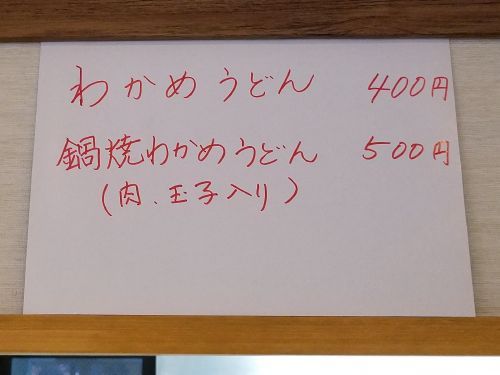 わかめうどん 400円
鍋焼わかめうどん 500円
(肉、玉子入り)